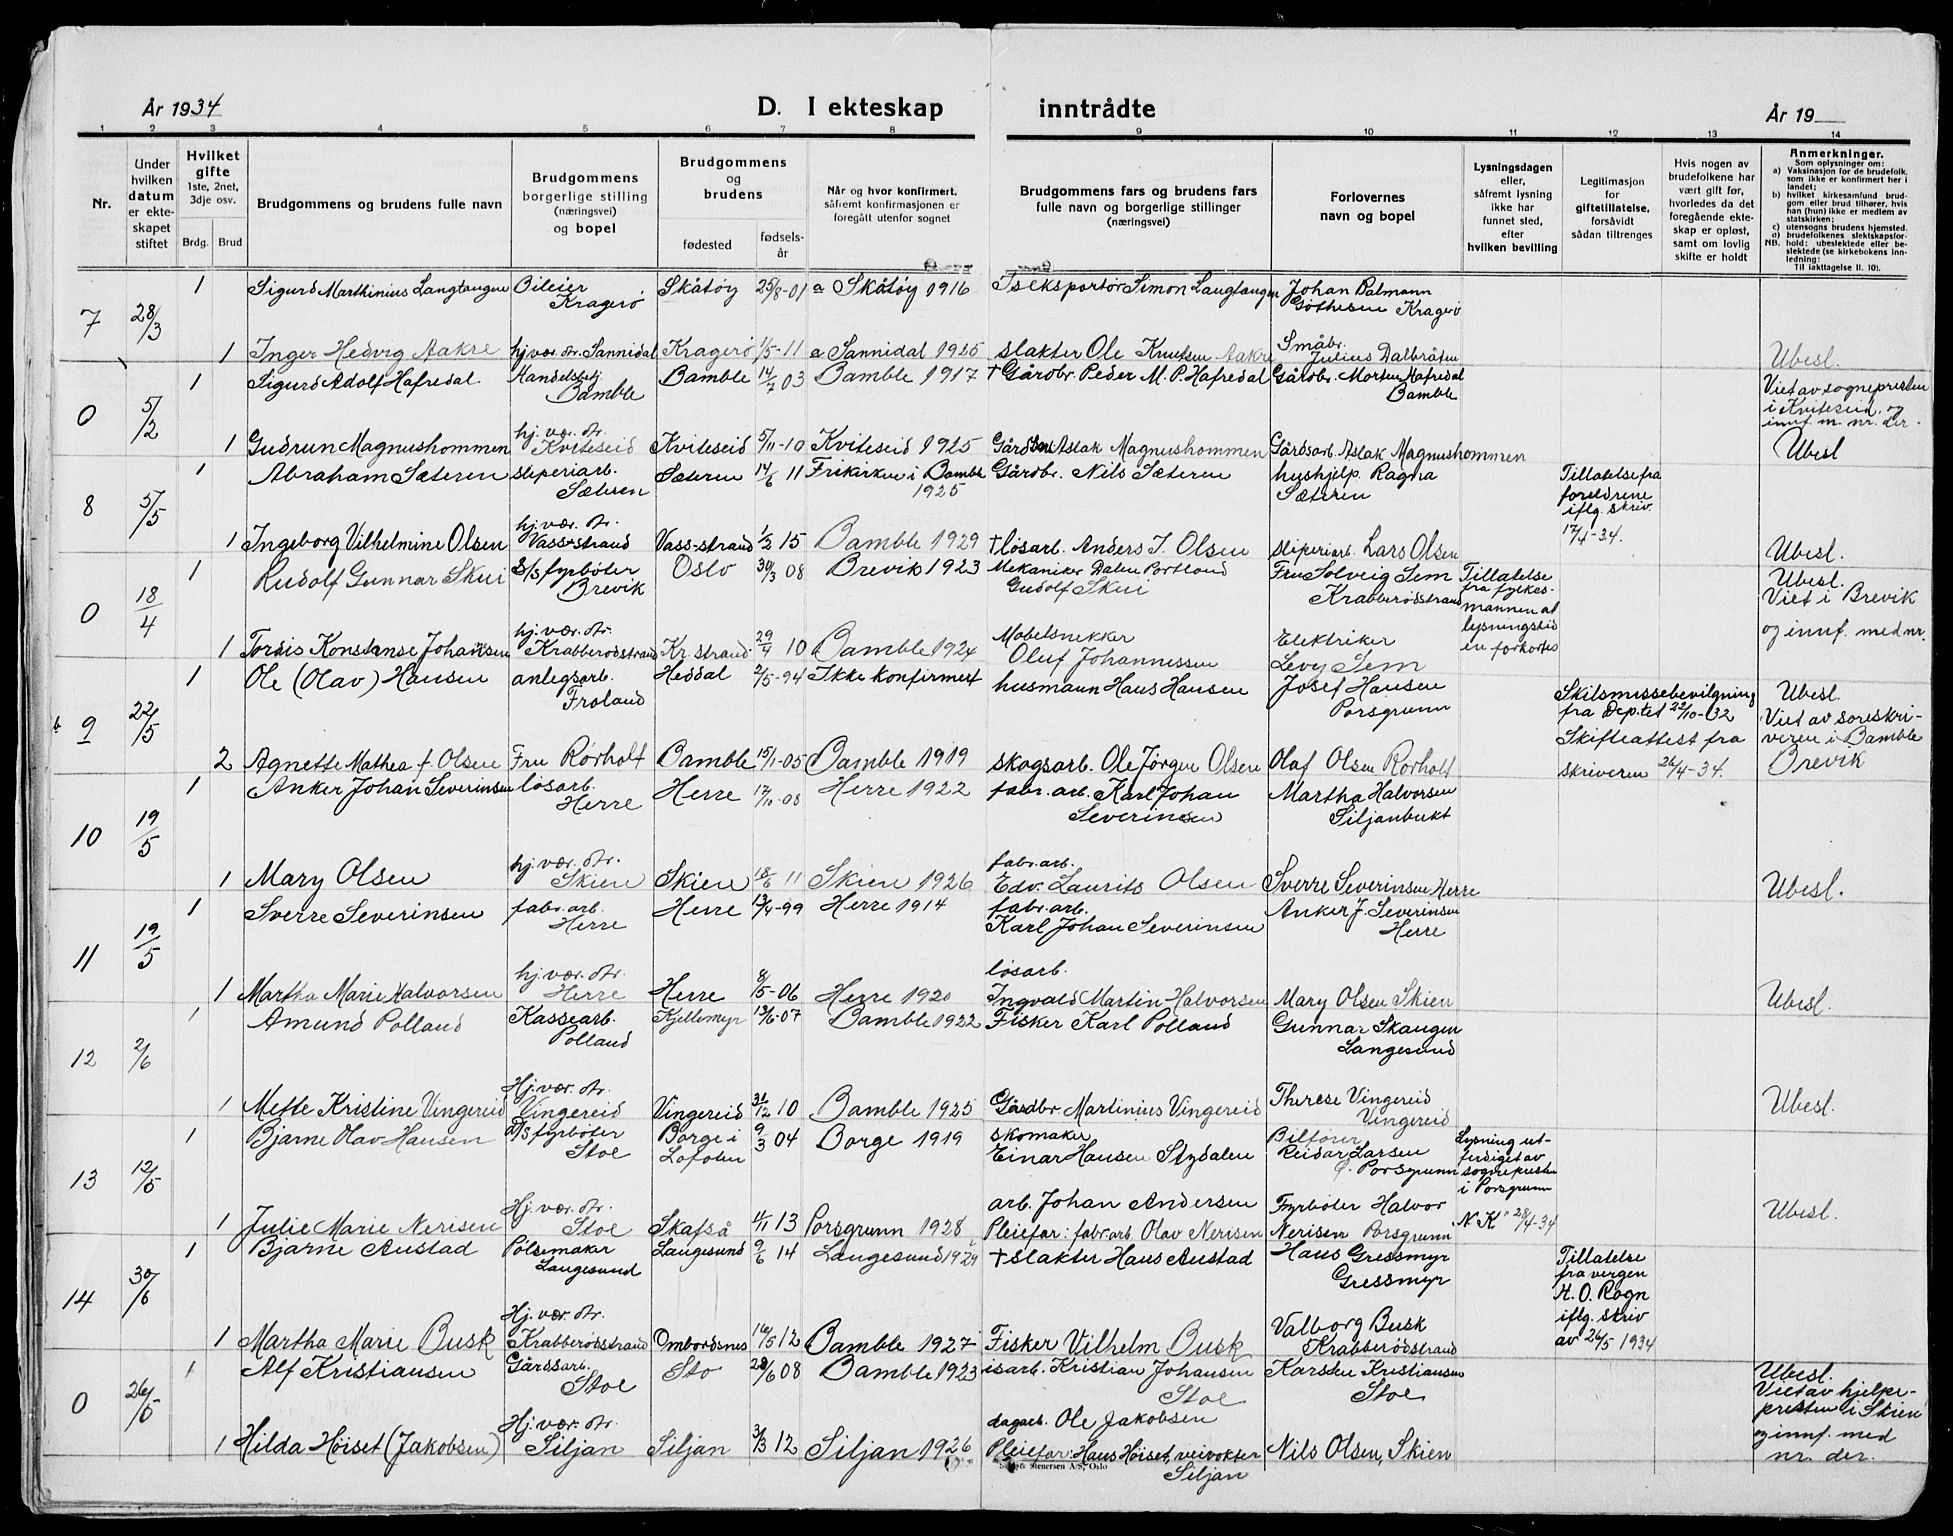 År 1934
D. I ekteskap inntrådte
År 19
1 2 3 4 5 6 7 8 9 10 11 12 13 14
Nr.
Under hvilken datum er ekteskapet stiftet
Hvilket gifte 1ste, 2net, 3dje osv.
Brdg. Brud
Brudgommens og brudens fulle navn
Brudgommens borgerlige stilling (næringsvei) og bopel
Brudgommens og brudens
fødested fødselsår
Når og hvor konfirmert, såfremt konfirmasjonen er foregått utenfor sognet
Brudgommens fars og brudens fars fulle navn og borgerlige stillinger (næringsvei)
Forlovernes navn og bopel
Lysningsdagen eller, såfremt lysning ikke har funnet sted, efter hvilken bevilling
Legitimasjon for giftetillatelse, forsåvidt sådan tiltrenges
Hvis nogen av brudefolkene har vært gift før, hvorledes da det foregående ekteskap er opløst, samt om lovlig skifte er holdt
Anmerkninger.
Som oplysninger om:
a) Vaksinasjon for de brudefolk, som ikke er konfirmert her i landet;
b) hvilket kirkesamfund brudgom eller brud tilhører, hvis han (hun) ikke er medlem av statskirken;
c) utensogns brudens hjemsted.
d) brudefolkenes slektskapsforhold: ubeslektede eller beslektede (se kirkebokens innledning:
NB. Til iakttagelse II. 10).
7 28/3 1 Sigurd Marthinius Langtangen Bileier Kragerø Skåtøy 25/8-01 a Skåtøy 1916 Iseksportør Simon Langtangen Johan Balmann Gøthesen Kragerø
1 Inger Hedvig Aakre hj.vær. dtr. Sannidal Kragerø 1/5-11 a Sannidal 1925 slakter Ole Knutsen Aakre Småbr. Julius Dalbråten Ubesl.
0 5/2 1 Sigurd Adolf Hafredal Handelsbetj. Bamble Bamble 14/7 03 Bamble 1917 † Gårdbr. Peder M. P. Hafredal Gårdbr. Morten Hafredal Bamble Viet av sognepresten i Kviteseid og innf. m. nr. der.
1 Gudrun Magnushommen hj. vær. dtr. Kviteseid Kviteseid 5/11-10 Kviteseid 1925 Aslak Magnushommen Gårdsarb. Aslak Magnushommen Ubesl
8 5/5 1 Abraham Sæteren sliperiarb. Sæteren Sæteren 14/6 11 Frikirken i Bamble 1925 Gårdbr. Nils Sæteren hushjelp. Ragna Sæteren Tillatelse fra foreldrene iflg. skriv 17/4-34.
1 Ingeborg Vilhelmine Olsen hj. vær. dtr. Vass-strand Vass-strand 1/2 15 Bamble 1929 † løsarb. Anders J. Olsen sliperiarb. Lars Olsen Ubesl.
0 18/4 1 Rudolf Gunnar Skui D/S fyrbøter Brevik Oslo 30/3 08 Brevik 1923 Mekaniker Dalen Portland Gudolf Skui Fru Solveig Sem Krabberødstrand Tillatelse fra fylkesmannen at lysningstiden forkortes Ubesl. Viet i Brevik og innf. med nr.
1 Tordis Konstanse Johansen hj. vær. dtr. Krabberødstrand Kr. strand 29/4 10 Bamble 1924 Møbelsnekker Oluf Johannessen Elektriker Levy Sem
9 22/5 1 Ole (Olav) Hansen anlegsarb. Froland Heddal 2/5-94 Ikke konfirmert husmann Hans Hansen Josef Hansen Porsgrunn Skilsmissebevilgning fra Dep.tet 22/10-32 Ubesl. Viet av sorenskriveren i Bamble Brevik
2 Agnette Mathea f. Olsen Fru Rørholt Bamble 15/1-05 Bamble 1919 skogsarb. Ole Jørgen Olsen Olaf Olsen Rørholt Skifteattest fra skriveren 26/4-34.
10 19/5 1 Anker Johan Severinsen løsarb. Herre Herre 17/10-08 Herre 1922 fabr. arb. Karl Johan Severinsen Martha Halvorsen Siljanbukt
1 Mary Olsen hj. vær. dtr. Skien Skien 18/6 11 Skien 1926 fabr. arb. Edv. Laurits Olsen Sverre Severinsen Herre Ubesl.
11 19/5 1 Sverre Severinsen fabr. arb. Herre Herre 13/4-99 Herre 1914 fabr. arb. Karl Johan Severinsen Anker J. Severinsen Herre
1 Martha Marie Halvorsen hj. vær. dtr. Herre Herre 8/5-06 Herre 1920 løsarb. Ingvald Martin Halvorsen Mary Olsen Skien Ubesl.
12 2/6 1 Amund Polland Kassearb. Polland Kjellemyr 13/6-07 Bamble 1922 Fisker Karl Polland Gunnar Skaugen Langesund
1 Mette Kristine Vingereid Hj. vær. dtr. Vingereid Vingereid 31/12 10 Bamble 1925 Gårdbr Martinius Vingereid Therese Vingereid Vingereid Ubesl.
13 12/5 1 Bjarne Olav Hansen D/S fyrbøter Stoe Borge i Lofoten 9/3 04 Borge 1919 skomaker Einar Hansen Stydalen Bilfører Reidar Larsen Porsgrunn Lysning utferdiget av sognepresten i Porsgrunn
1 Julie Marie Nerisen Hj. vær. dtr. Stoe Skafså 4/11 13 Porsgrunn 1928 arb. Johan Andersen Pleiefar: fabr.arb. Olav Nerisen Fyrbøter Halvor Nerisen Porsgrunn N. K. 28/4-34 Ubesl.
14 30/6 1 Bjarne Austad Pølsemaker Langesund Langesund 9/6 14 Langesund 1929 † slakter Hans Austad Hans Gressmyr Gressmyr Tillatelse fra vergen H. O. Rogn iflg. skriv av 26/5 1934
1 Martha Marie Busk Hj. vær. dtr. Krabberødstrand Ombordsnes 16/5 12 Bamble 1927 Fisker Vilhelm Busk Valborg Busk Krabberødstrand
0 26/5 1 Alf Kristiansen Gårdsarb. Stoe Sto 28/6 08 Bamble 1923 isarb. Kristian Johansen Stoe Karsten Kristiansen Stoe Ubesl. Viet av hjelpepresten i Skien og innf. med nr. der.
1 Hilda Høiset (Jakobsen) Hj. vær. dtr. Siljan Siljan 3/3 12 Siljan 1926 dagarb. Ole Jakobsen Pleiefar: Hans Høiset, veivokter Siljan Nils Olsen, Skien
& Stenersen A/S, Oslo